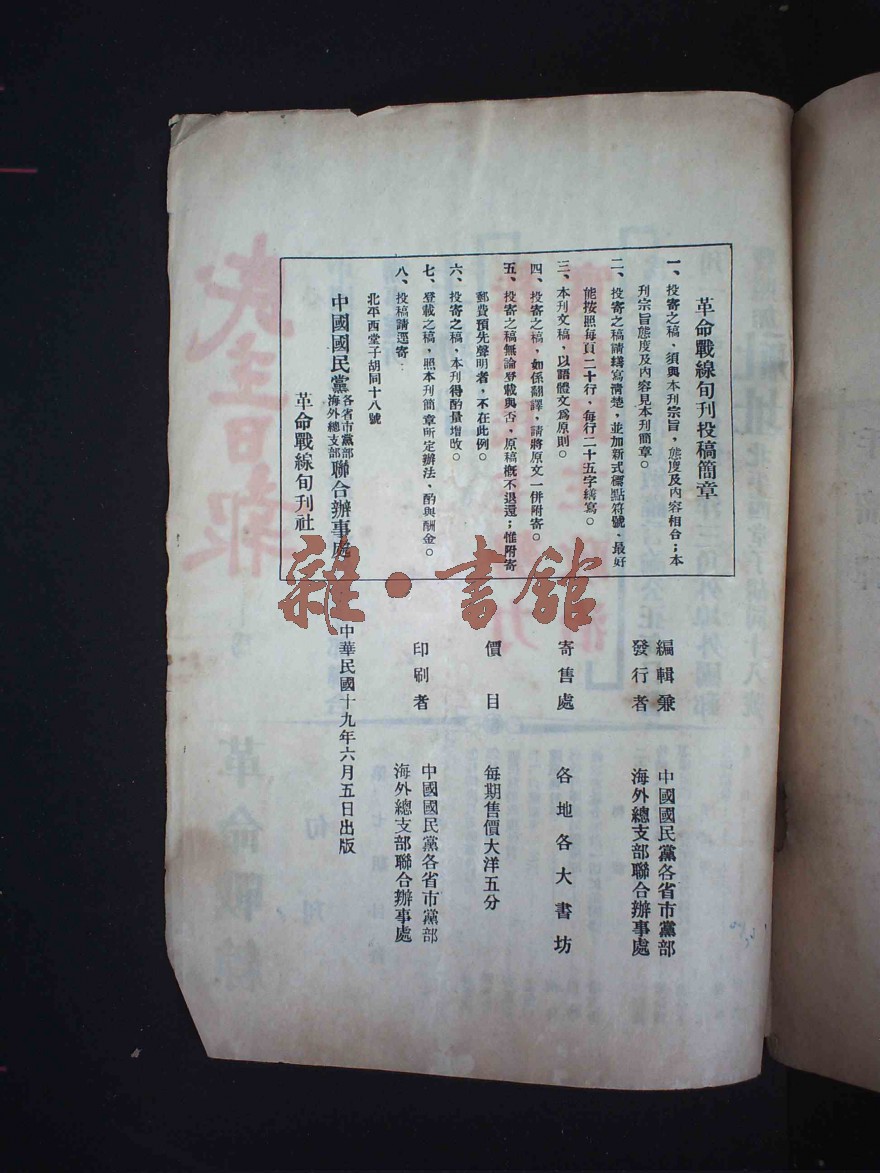 革命戰線旬刊投稿簡章
一、投寄之稿，須與本刊宗旨，態度及內容相合；本
刊宗旨態度及內容見本刊簡章。
二、投寄之稿請繕寫清楚，並加新式標點符號、最好
能按照每頁二十行，每行二十五字繕寫。
三、本刊文稿，以語體文爲原則。
四、投寄之稿，如係翻譯，請將原文一併附寄。
五、投寄之稿無論登載與否，原稿槪不退還；惟附寄
郵費預先聲明者，不在此例。
六、投寄之稿，本刊得酌量增改。
七、登載之稿，照本刊簡章所定辦法，酌與酬金。
八、投稿請逕寄：
北平西堂子胡同十八號
中國國民黨各省市黨部海外總支部聯合辦事處
革命戰線旬刊社
編輯兼發行者
中國國民黨各省市黨部
海外總支部聯合辦事處
寄售處
各地各大書坊
價目
每期售價大洋五分
印刷者
中國國民黨各省市黨部
海外總支部聯合辦事處
中華民國十九年六月五日出版
雜·書館